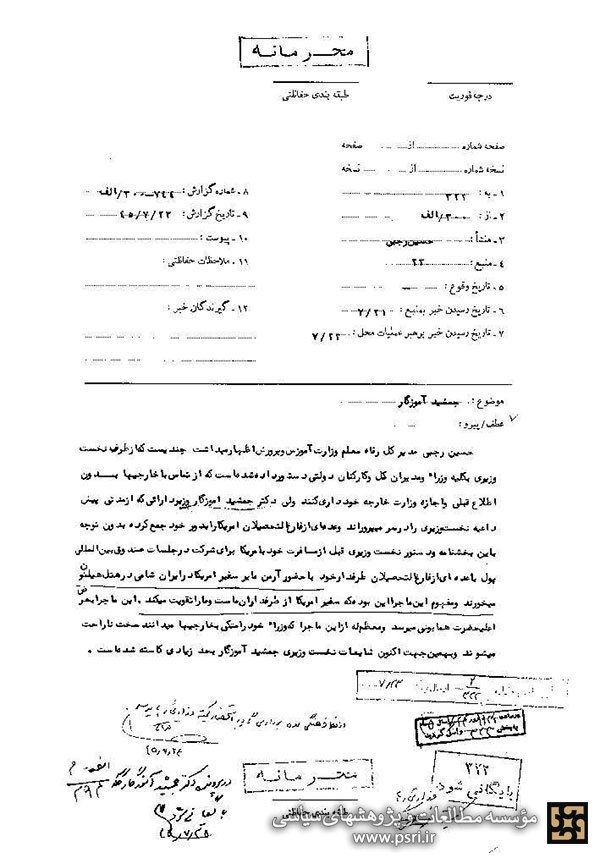 محرمانه
درجه فوریت
طبقه بندی حفاظتی
صفحه شماره از صفحه
نسخه شماره از نسخه
۱ - به : ۳۲۲
۲ - از : ۳۰۰/الف
۳ - منشأ : حسین رجبی
۴ - منبع :
۵ - تاریخ وقوع :
۶ - تاریخ رسیدن خبر بمنبع : ۷/۲۱
۷ - تاریخ رسیدن خبر برهبر عملیات محل : ۷/۲۳
۸ - شماره گزارش :
۹ - تاریخ گزارش : ۴۵/۷/۲۳
۱۰ - پیوست :
۱۱ - ملاحظات حفاظتی :
۱۲ - گیرندگان خبر :
موضوع : جمشید آموزگار
عطف/پیرو :
حسین رجبی مدیر کل رفاه معلم وزارت آموزش و پرورش اظهار میداشت چندیست که از طرف نخست
وزیری بکلیه وزراء و مدیران کل و کارکنان دولتی دستور داده شده است که از تماس با خارجیها بدون
اطلاع قبلی و اجازه وزارت خارجه خود داری کنند ولی دکتر جمشید آموزگار وزیر دارائی که از مدتی پیش
داعیه نخست وزیری را در سر میپروراند وعده ای از فارغ التحصیلان امریکا را بدور خود جمع کرده بدون توجه
باین بخشنامه و دستور نخست وزیری قبل از مسافرت خود بامریکا برای شرکت در جلسات صندوق بین المللی
پول با عده ای از فارغ التحصیلان طرفدار خود با حضور آرمن مایر سفیر امریکا در ایران شامی در هتل هیلتون
میخورند و مفهوم این ماجرا این بوده که سفیر امریکا از طرفداران ماست و ما را تقویت میکند . با این ماجرا بعرض
اعلیحضرت همایونی میرسد و معظم له از این ماجرا که وزراء خود را متکی بخارجیها میدانند سخت ناراحت
میشوند و بهمین جهت اکنون شایعات نخست وزیری جمشید آموزگار بحد زیادی کاسته شده است .
۳۲۲
بایگانی شود
محرمانه
طبقه بندی حفاظتی
مؤسسه مطالعات و پژوهشهای سیاسی
www.psri.ir